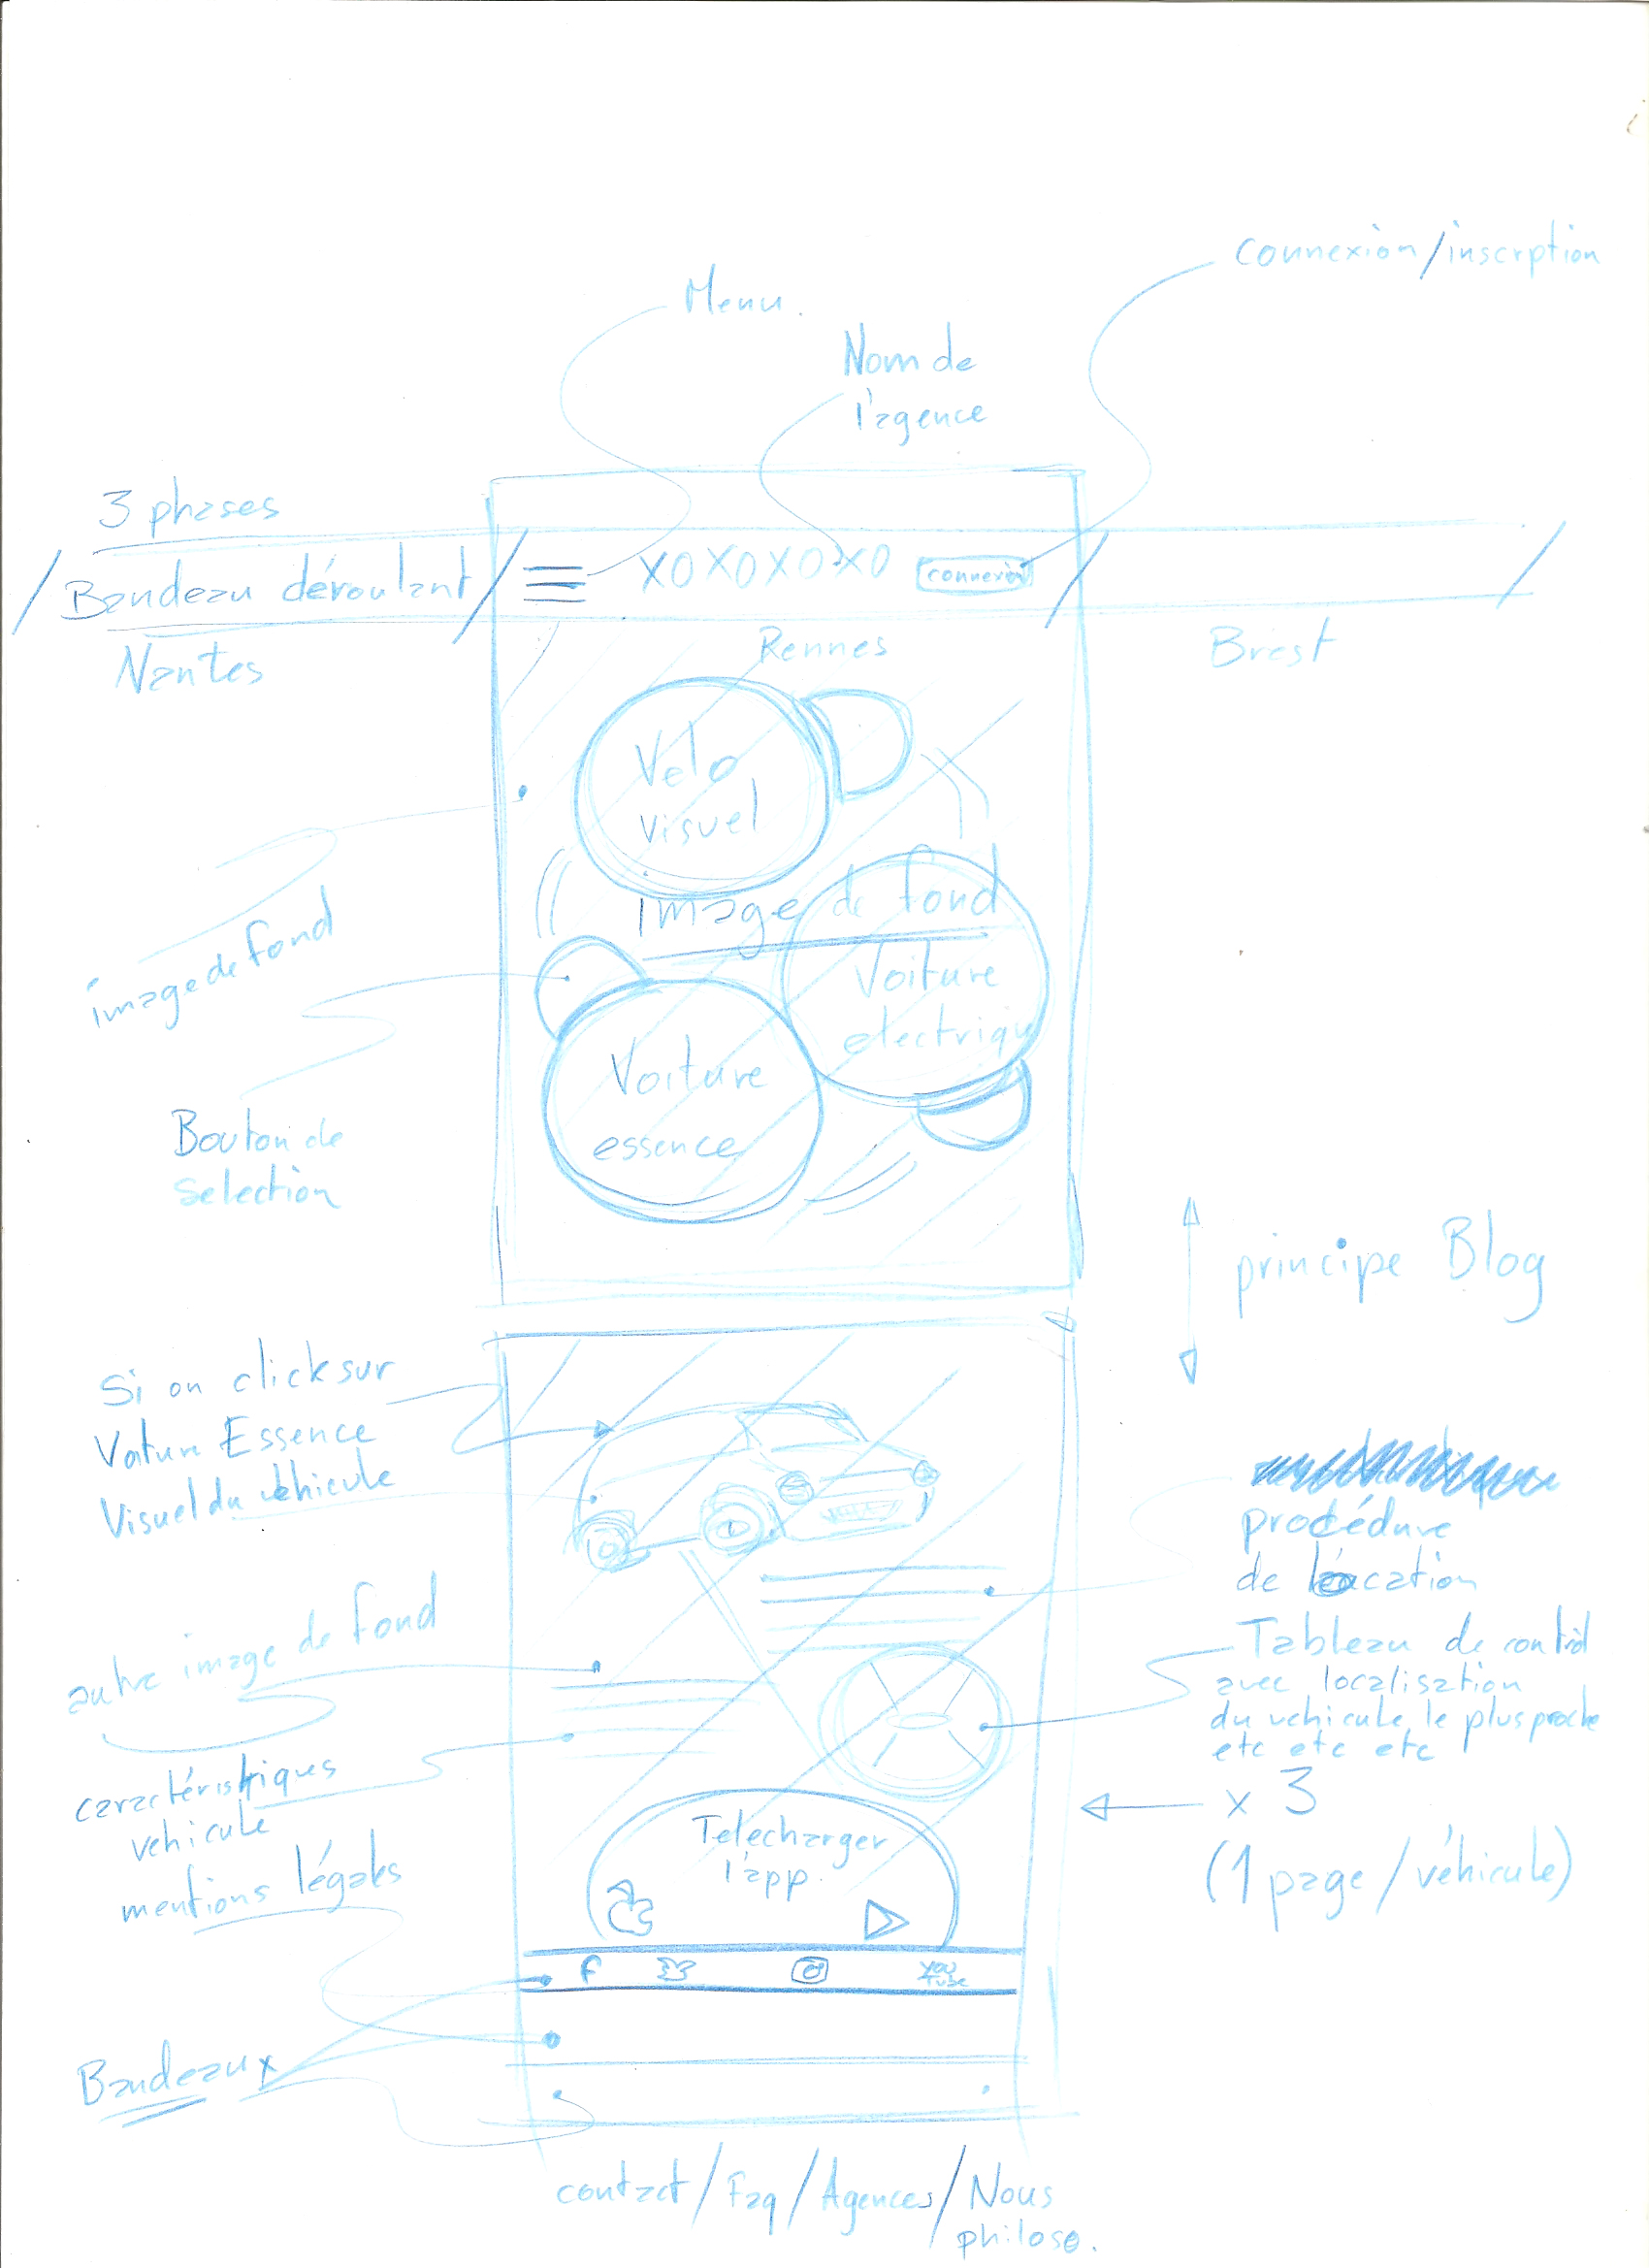 connexion/inscrption
Menu.
Nom de
l'agence
3 phases
Bandeau déroulant
XOXOXOXO
connexion
Nantes
Rennes
Brest
Velo
visuel
image de fond
Voiture
electriqu
image de fond
Voiture
essence
Bouton de
selection
principe Blog
Si on click sur
Voiture Essence
Visuel du véhicule
procédure
de location
autre image de fond
Tableau de contrôl
avec localisation
du vehicule le plus proche
etc etc etc
caractéristiques
vehicule
x 3
(1 page/véhicule)
Telecharger
l'app.
mentions légales
f
You
Tube
Bandeaux
contact/Faq/Agences/Nous
philoso.